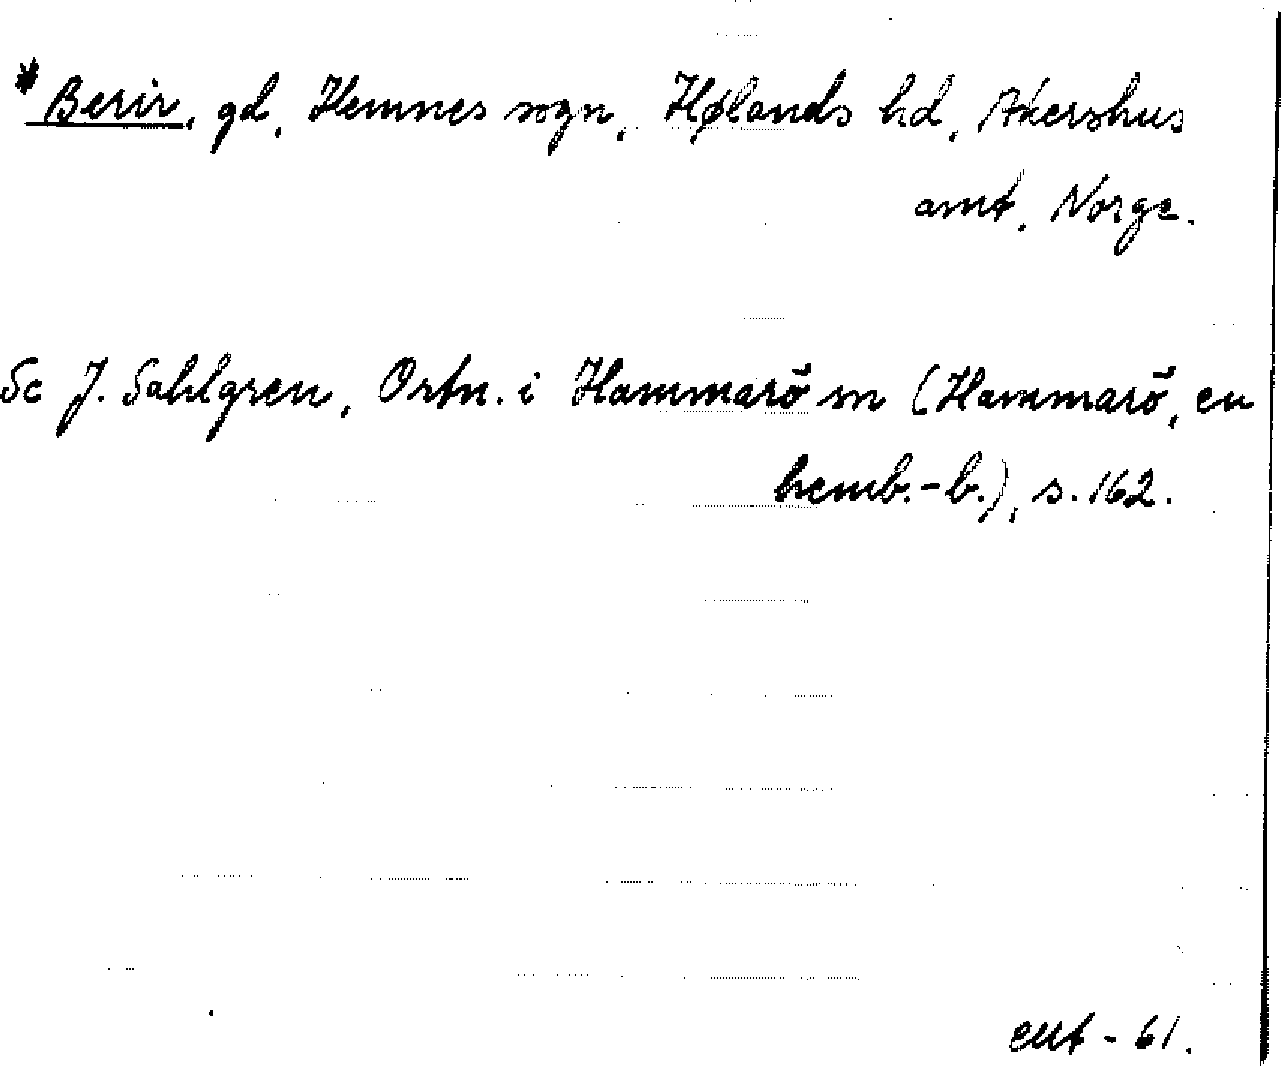 *Berir, gd, Hemnes sogn, Hølands hd, Akershus
amt, Norge.
Se J. Sahlgren, Ortn. i Hammarö sn (Hammarö, en
hemb.-b.), s. 162.
eut - 61.